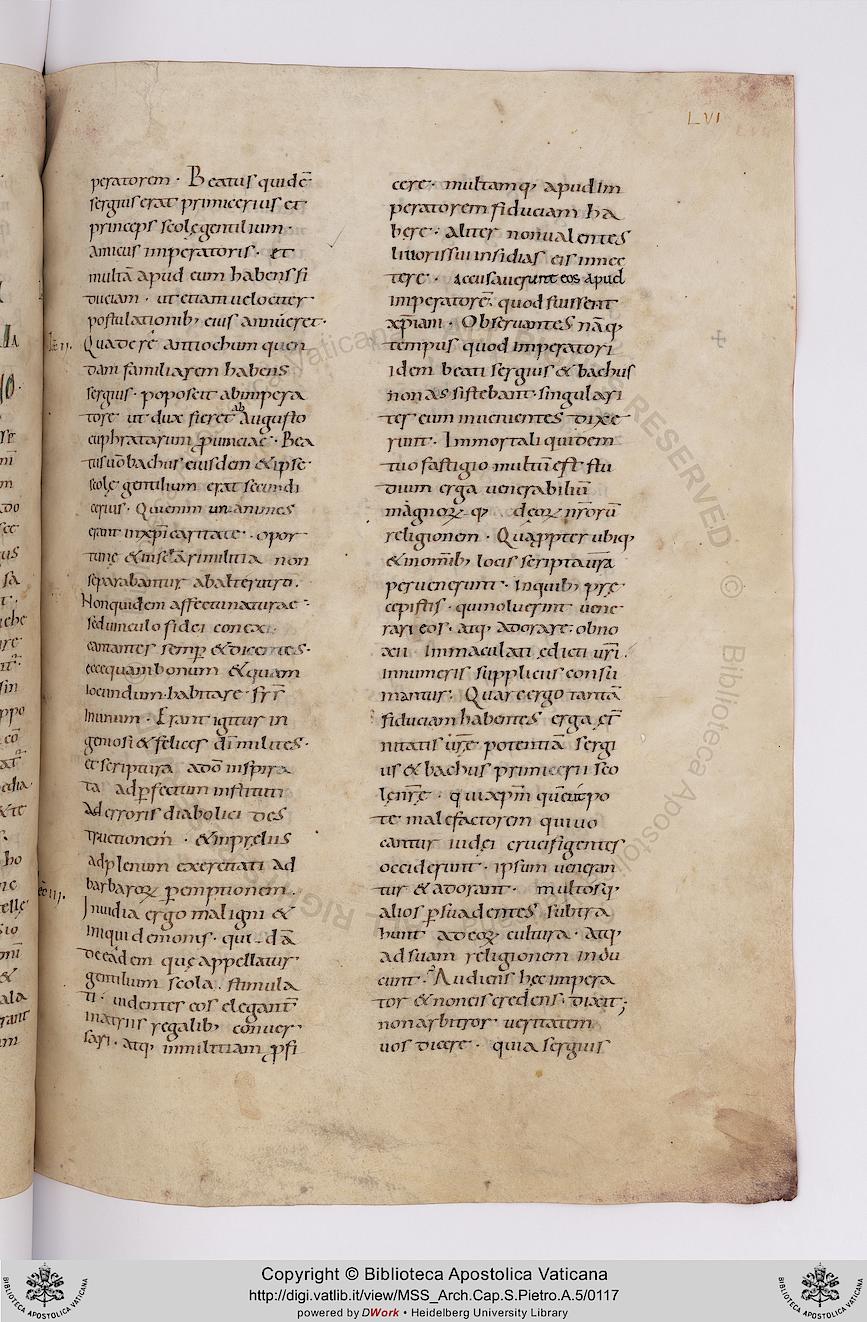 LVI
peratorem · Beatus quidē
sergius erat primicerius et
princeps scolę gentilium ·
amicus imperatoris · et
multā apud eum habens fi
duciam · ut etiam uelociter
postulationib; eius annueret ·
Quadere antiochum quen
dam familiarem habens
sergius · poposcit ab impera
tore ut dux fieret ab Augusto
euphratarum ꝓuinciae · Bea
tus uō bachus eiusdem & ipse
scolę gentilium erat secundi
cerius · Qui enim unanimes
erant inexp̄i caritate · opor
tune & inseꝑarimilitia non
separabantur ab alterutro ·
Non quidem affectu naturae ·
sed uinculo fidei conexi ·
cantantes semꝑ & dicentes ·
ecce quam bonum & quam
iocundum habitare fr̄s
in unum · Erant igitur in
geniosi & felices dī milites ·
et scriptura a dō inspira
ta ad ꝑfectum instituti
ad erroris diabolici des
tructionem · & in prelus
ad plenum exercitati ad
barbaroꝝ ꝑemptionem ·
Inuidia ergo maligni &
iniqui demonis · qui dā
de eadem quę appellatur
gentilium scola · stimula
ti · uidentes eos elegant̄
in atriis regalib; conuer
sari · atq; in militiam ꝓfi
cere · multamq; apud im
peratorem fiduciam ha
bere · aliter non ualentes
liuoris sui insidias eis innec
tere · accusauerunt eos apud
imperatorē · quod fuissent
xp̄iani · Obseruantes nāq;
tempus quod imperatori
idem beati sergius & bachus
non assistebant · singulari
ter eum inuenientes dixe
runt · Immortali quidem
tuo fastigio multū est stu
dium erga uenerabiliū
magnoꝝ q; deoꝝ nr̄orū
religionem · Quapropter ubiq;
& in omīb; locis scripta ur̄a
peruenerunt · in quib; pre
cepistis · qui noluerint uene
rari eos · atq; adorare · obno
xii immaculati edicti ur̄i ·
innumeris suppliciis consu
mantur · Quare ergo tantā
fiduciam habentes erga ęt̄
nitatis ur̄ę potentiā sergi
us & bachus primicerii sco
lę nr̄ę · qui xp̄m quem
te malefactorem qui uo
cantur iudei crucifigentes
occiderunt · ipsum ueneran
tur & adorant · multosq;
alios ꝑsuadentes subtra
hunt a deoꝝ cultura · atq;
ad suam religionem indu
cunt · Audiens hec impera
tor & non eis credens · dixit ;
non arbitror · ueritatem
uos dicere · quia sergius
Copyright © Biblioteca Apostolica Vaticana
http://digi.vatlib.it/view/MSS_Arch.Cap.S.Pietro.A.5/0117
powered by DWork • Heidelberg University Library